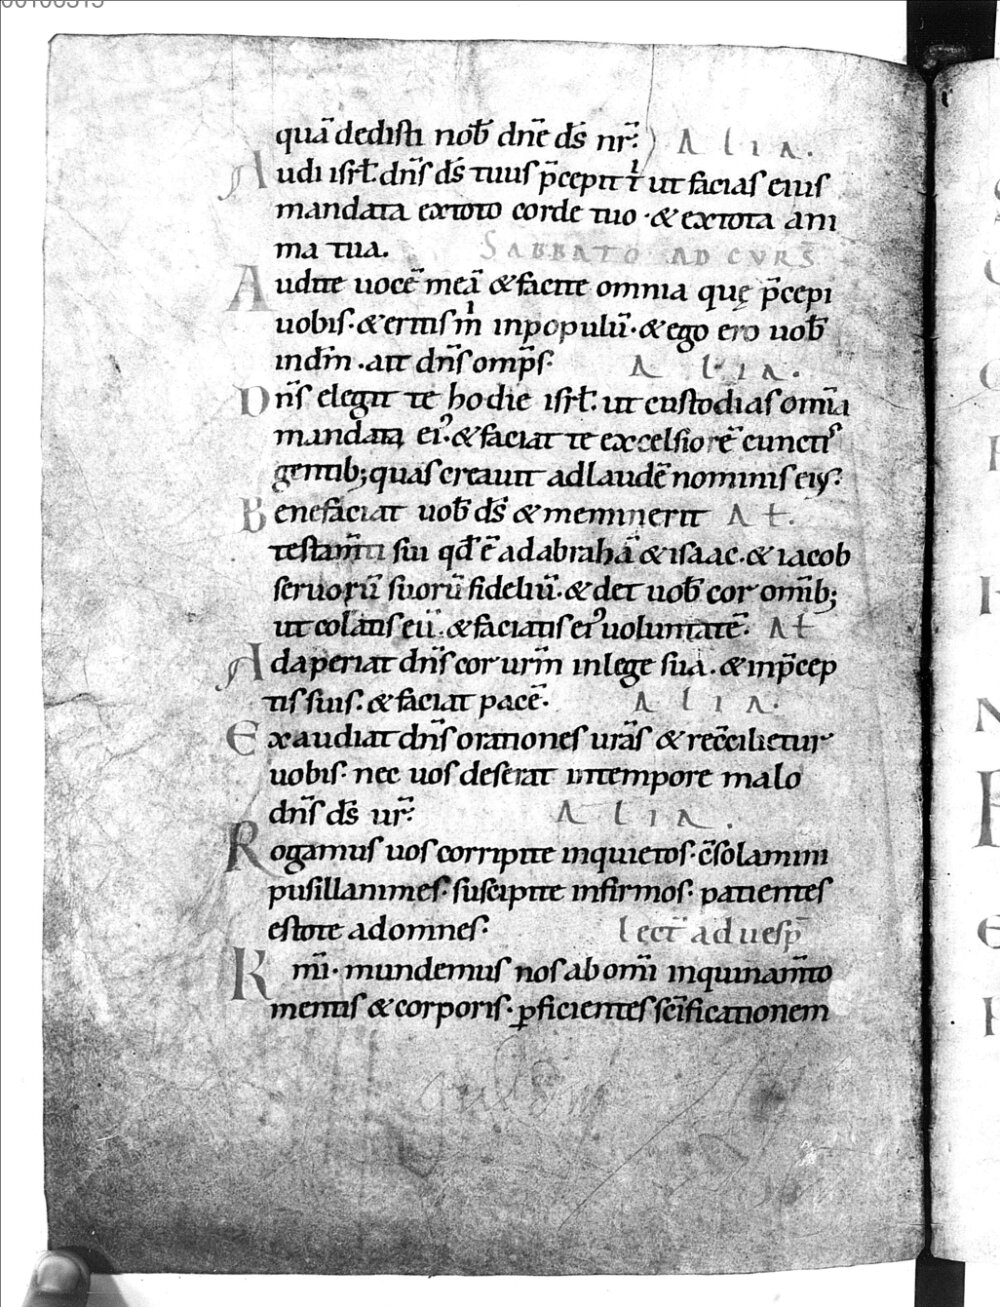 quā dedisti nob̄ dn̄e ds̄ nr̄: ALIA.
Audi isrƚ: dn̄s ds̄ tuus p̄cepit t͛ ut facias eius
mandata extoto corde tuo · & extota ani
ma tua. SABBATO AD CVRS̄
Audite uocē meā & facite omnia quę p̄cepi
uobis· & eritis m͛ inpopulū· & ego ero uob̄
inds̄m · ait dn̄s omp̄s· ALIA.
Dn̄s elegit te hodie isrƚ: ut custodias om̄ia
mandata ei᾽· & faciat te excelsiorē cunctis
gentib; quas creauit adlaudē nominis eius:
Benefaciat uob̄ ds̄ & meminerit Aƚ.
testam̄ti sui qd̄ ē adabrahā & isaac· & iacob
seruorū suorū fideliū· & det uob̄ cor om̄ib;
ut colatis eū· & faciatis ei᾽ uoluntatē· Aƚ
Adaperiat dn̄s cor urm̄ inlege sua· & inp̄cep
tis suis· & faciat pacē· ALIA.
Exaudiat dn̄s orationes urās & recc̄ilietur
uobis· nec uos deserat intempore malo
dn̄s ds̄ ur̄: ALIA.
Rogamus uos corripite inquietos· c̄solamini
pusillanimes· suscipite infirmos· patientes
estote adomnes· lect̄ ad uesp̄
Km̄i· mundemus nos ab om̄i inquinam̄to
mentis & corporis· ꝑficientes sc̄ificationem